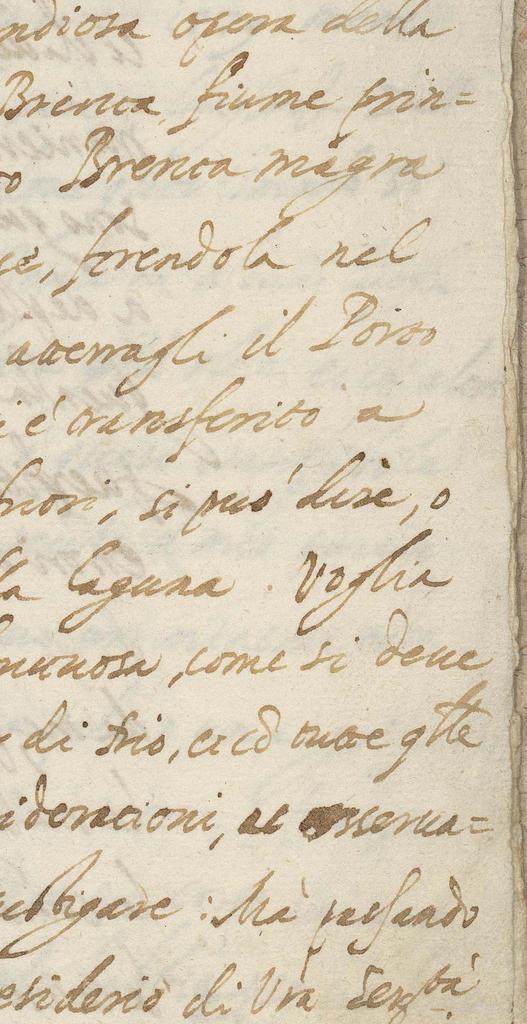 ndiosa opera della
Brenta, fiume prin=
to Brenta magra
se, forendola nel
atterragli il Porto
i é transferito a
fuori, si può dire, o
la laguna. Voglia
, come si deue
di Sio, et cō tutte q̃lle
iderationi, et osserua=
estigare: Mà passando
esiderio di Vrã Ser.tà